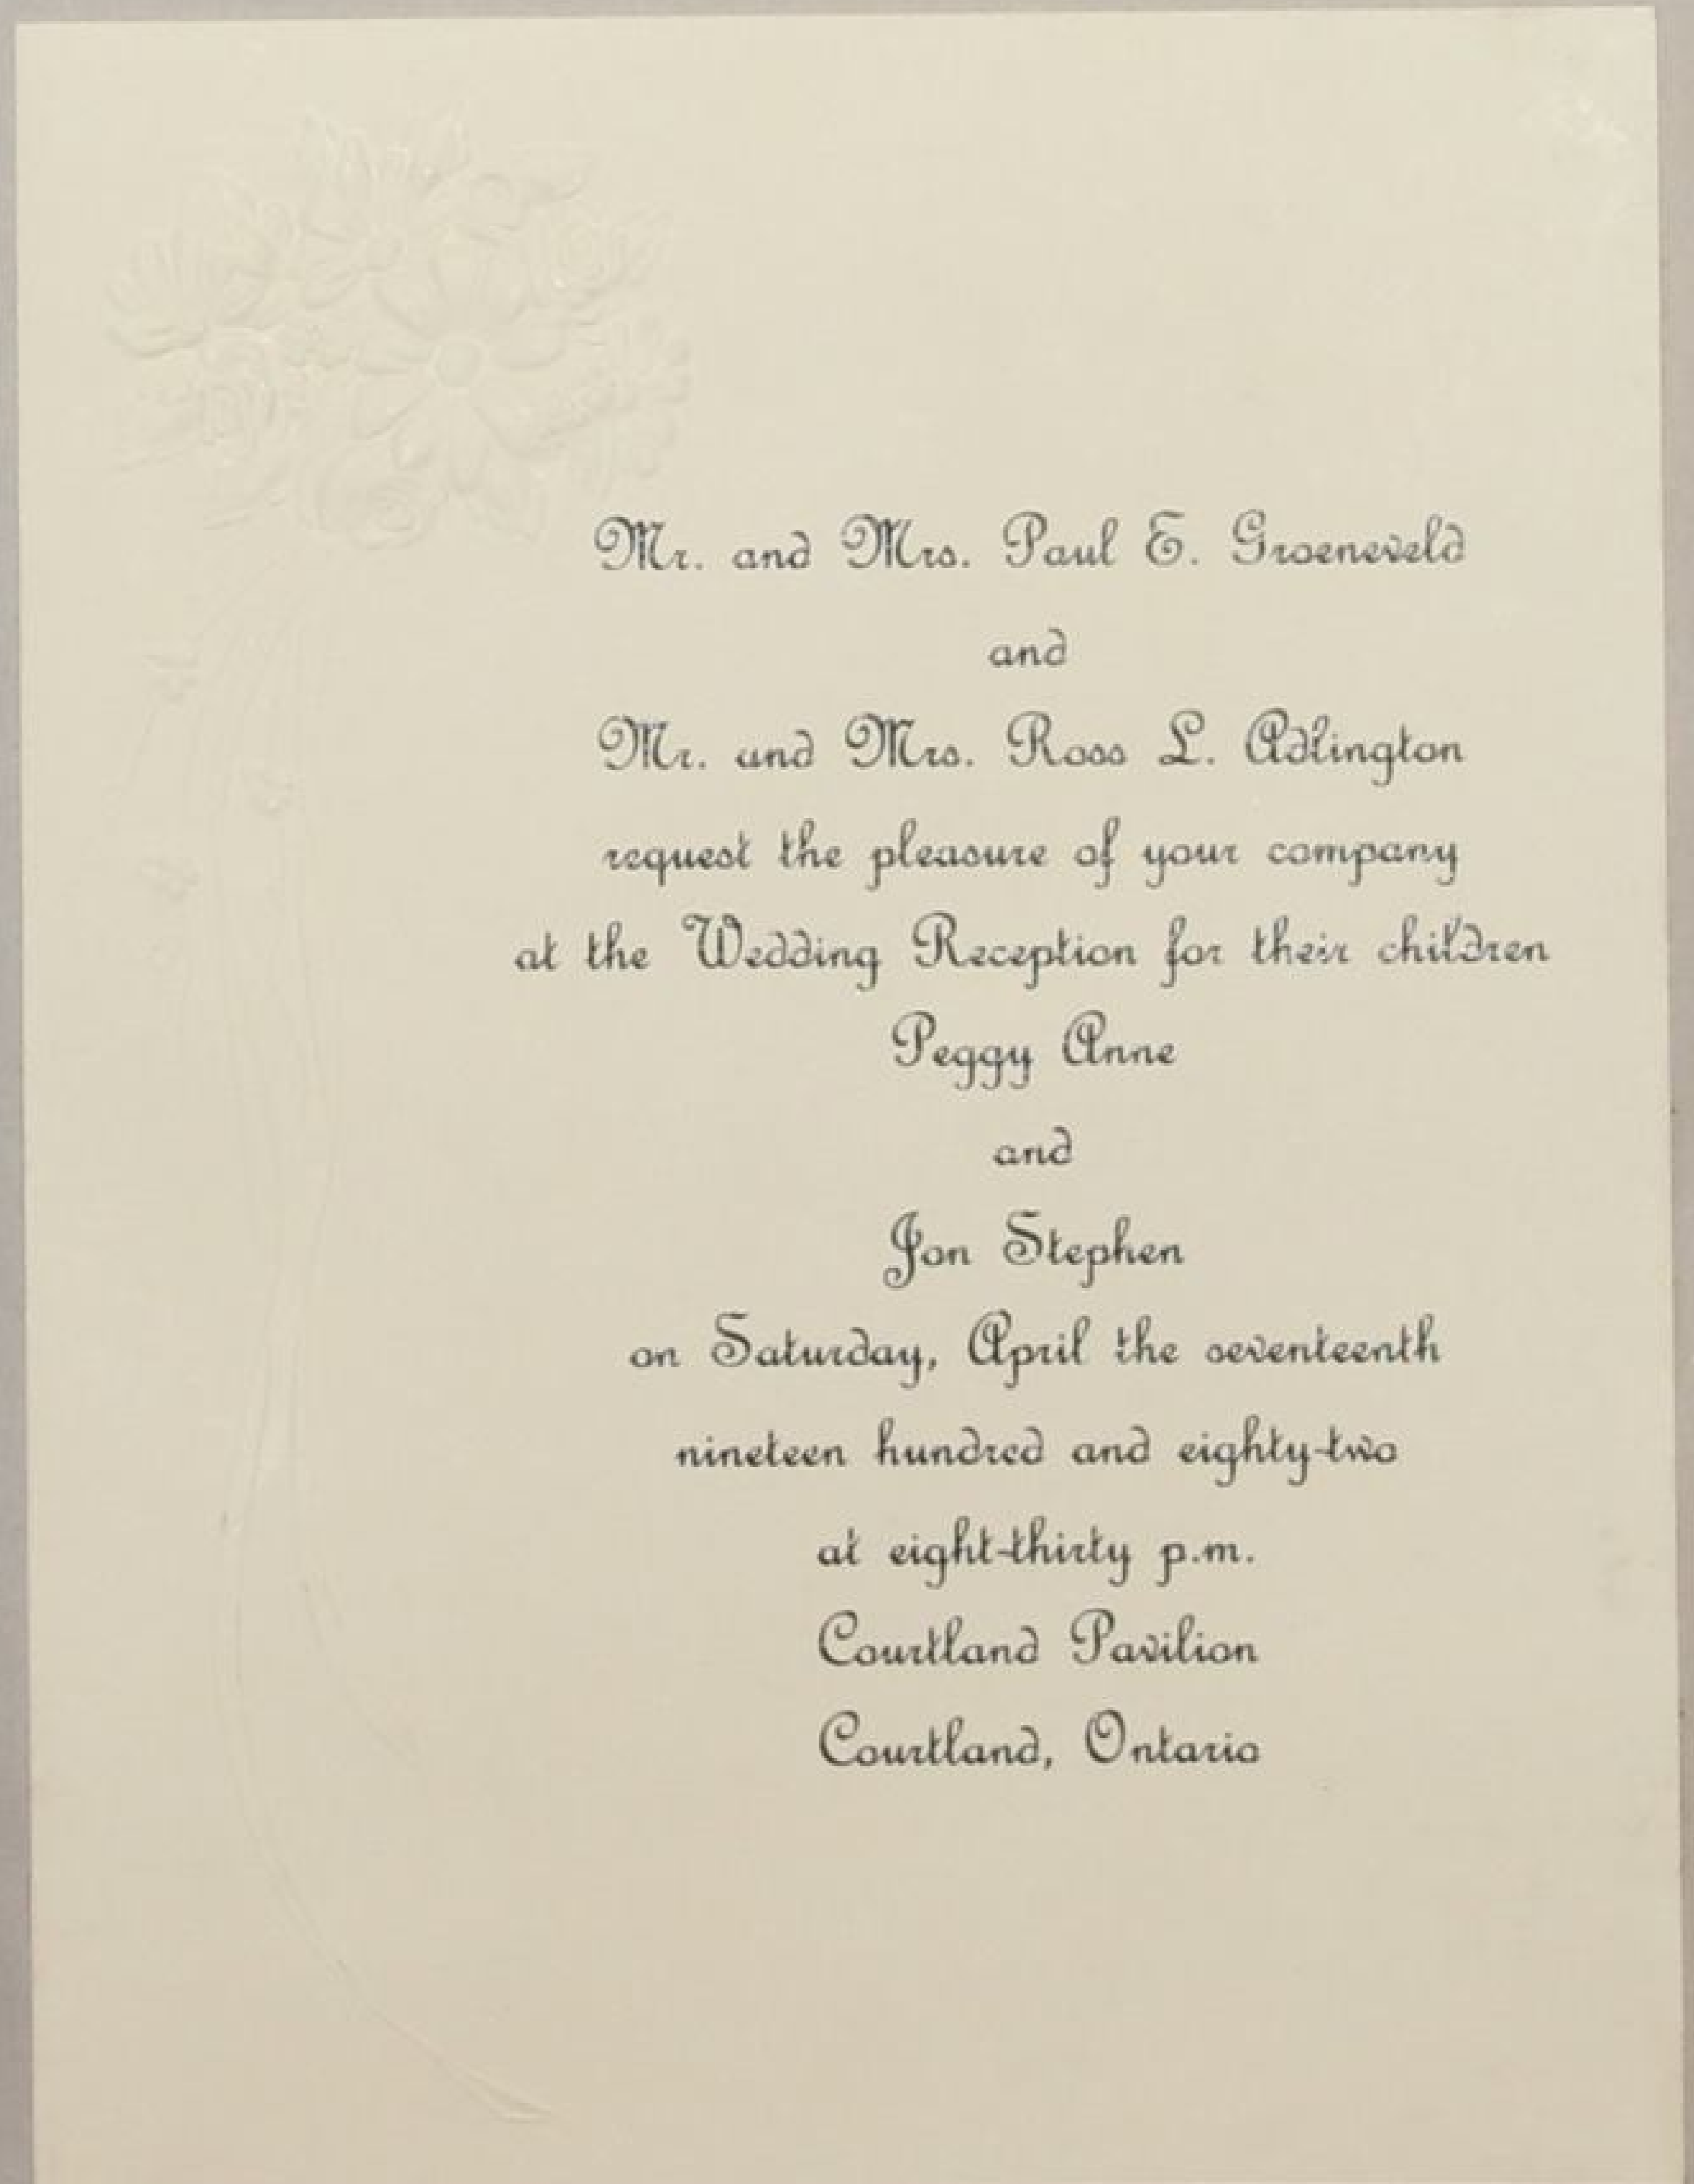 Mr. and Mrs. Paul E. Groeneveld
and
Mr. and Mrs. Ross L. Adlington
request the pleasure of your company
at the Wedding Reception for their children
Peggy Anne
and
Jon Stephen
on Saturday, April the seventeenth
nineteen hundred and eighty-two
at eight-thirty p.m.
Courtland Pavilion
Courtland, Ontario